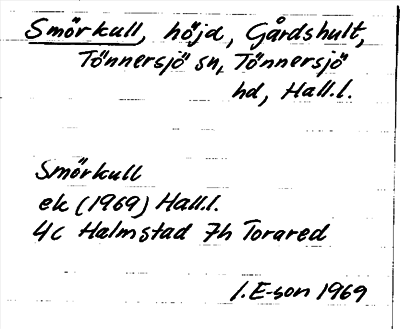 Smörkull, höjd, Gårdshult,
Tönnersjö sn, Tönnersjö
hd, Hall.l.
Smörkull
ek (1969) Hall.l.
4c Halmstad 7h Torared
I. E-son 1969